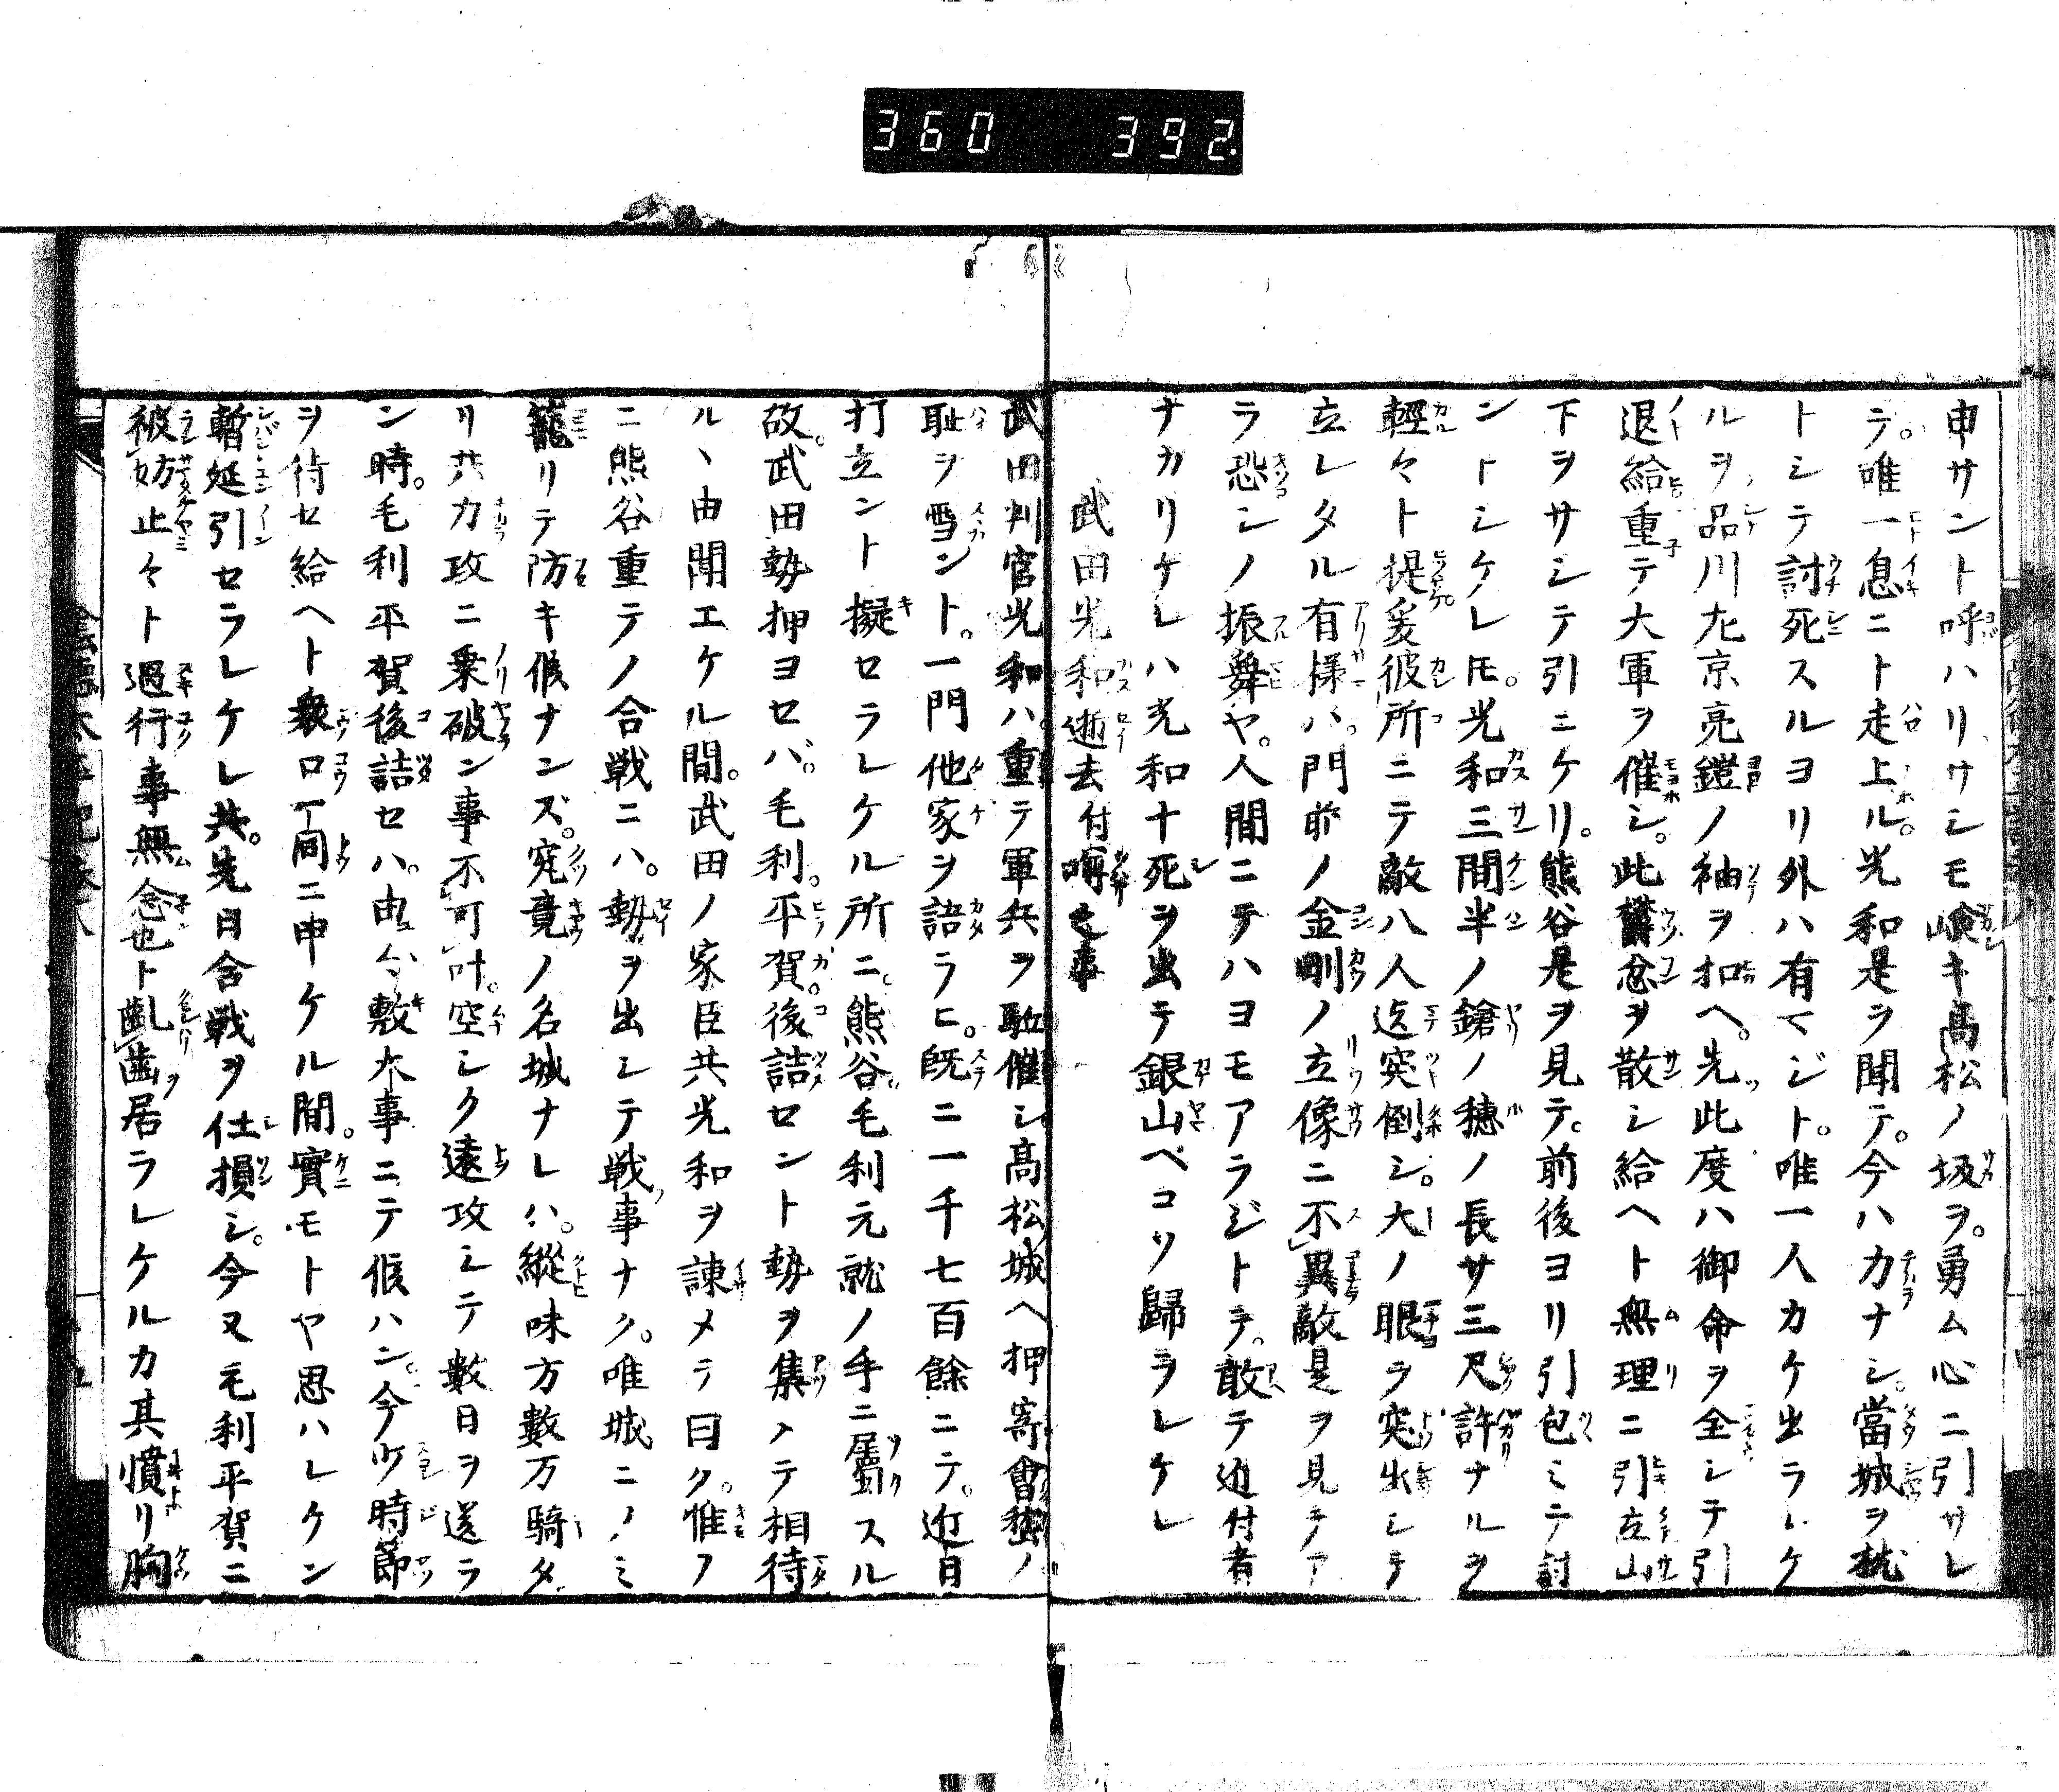 360 392.
申サント呼ハリサシモ嶮キ高松ノ坂ヲ。勇ム心ニ引サレ
テ。唯一息ニト走上ル。光和是ヲ聞テ。今ハカナシ。當城ヲ枕
トシテ討死スルヨリ外ハ有マジト。唯一人カケ出ラレケ
ルヲ品川左京亮鎧ノ袖ヲ扣ヘ。先此度ハ御命ヲ全シテ引
退給重テ大軍ヲ催シ。此欝忿ヲ散シ給ヘト無理ニ引立山
下ヲサシテ引ニケリ。熊谷是ヲ見テ。前後ヨリ引包ミテ討
ントシケレ𪜈。光和三間半ノ鎗ノ穂ノ長サ三尺許ナルヲ
輕々ト提爰彼所ニテ敵八人迄突倒シ。大ノ眼ヲ突出シテ
立レタル有様ハ。門前ノ金剛ノ立像ニ不異敵是ヲ見テア
ラ恐シノ振舞ヤ。人間ニテハヨモアラジトテ。敢テ近付者
ナカリケレハ光和十死ヲ出テ銀山ヘコソ歸ラレケレ
武田光和逝去付𠵅之事
武田判官光和ハ。重テ軍兵ヲ駈催シ高松城ヘ押寄會稽ノ
耻ヲ雪ント。一門他家ヲ語ラヒ。既ニ一千七百餘ニテ。近日
打立ント擬セラレケル所ニ。熊谷。毛利元就ノ手ニ屬スル
故。武田勢押ヨセバ。毛利。平賀。後詰セント勢ヲ集メテ相待
ルヽ由聞エケル間。武田ノ家臣共光和ヲ諌メテ曰ク。惟フ
ニ熊谷重テノ合戦ニハ。勢ヲ出シテ戦事ナク。唯城ニノミ
籠リテ防キ候ナンズ。究竟ノ名城ナレハ。縱味方數万騎タ
リ共力攻ニ乗破ン事不可叶。空シク遠攻シテ數日ヲ送ラ
ン時。毛利平賀後詰セハ。由々敷大事ニテ候ハン。今少時節
ヲ待セ給ヘト衆口一同ニ申ケル間。實モトヤ思ハレケン
暫延引セラレケレ共。先日合戦ヲ仕損シ。今又毛利平賀ニ
被妨止々ト過行事無念也ト齔歯居ラレケルカ其憤リ胸